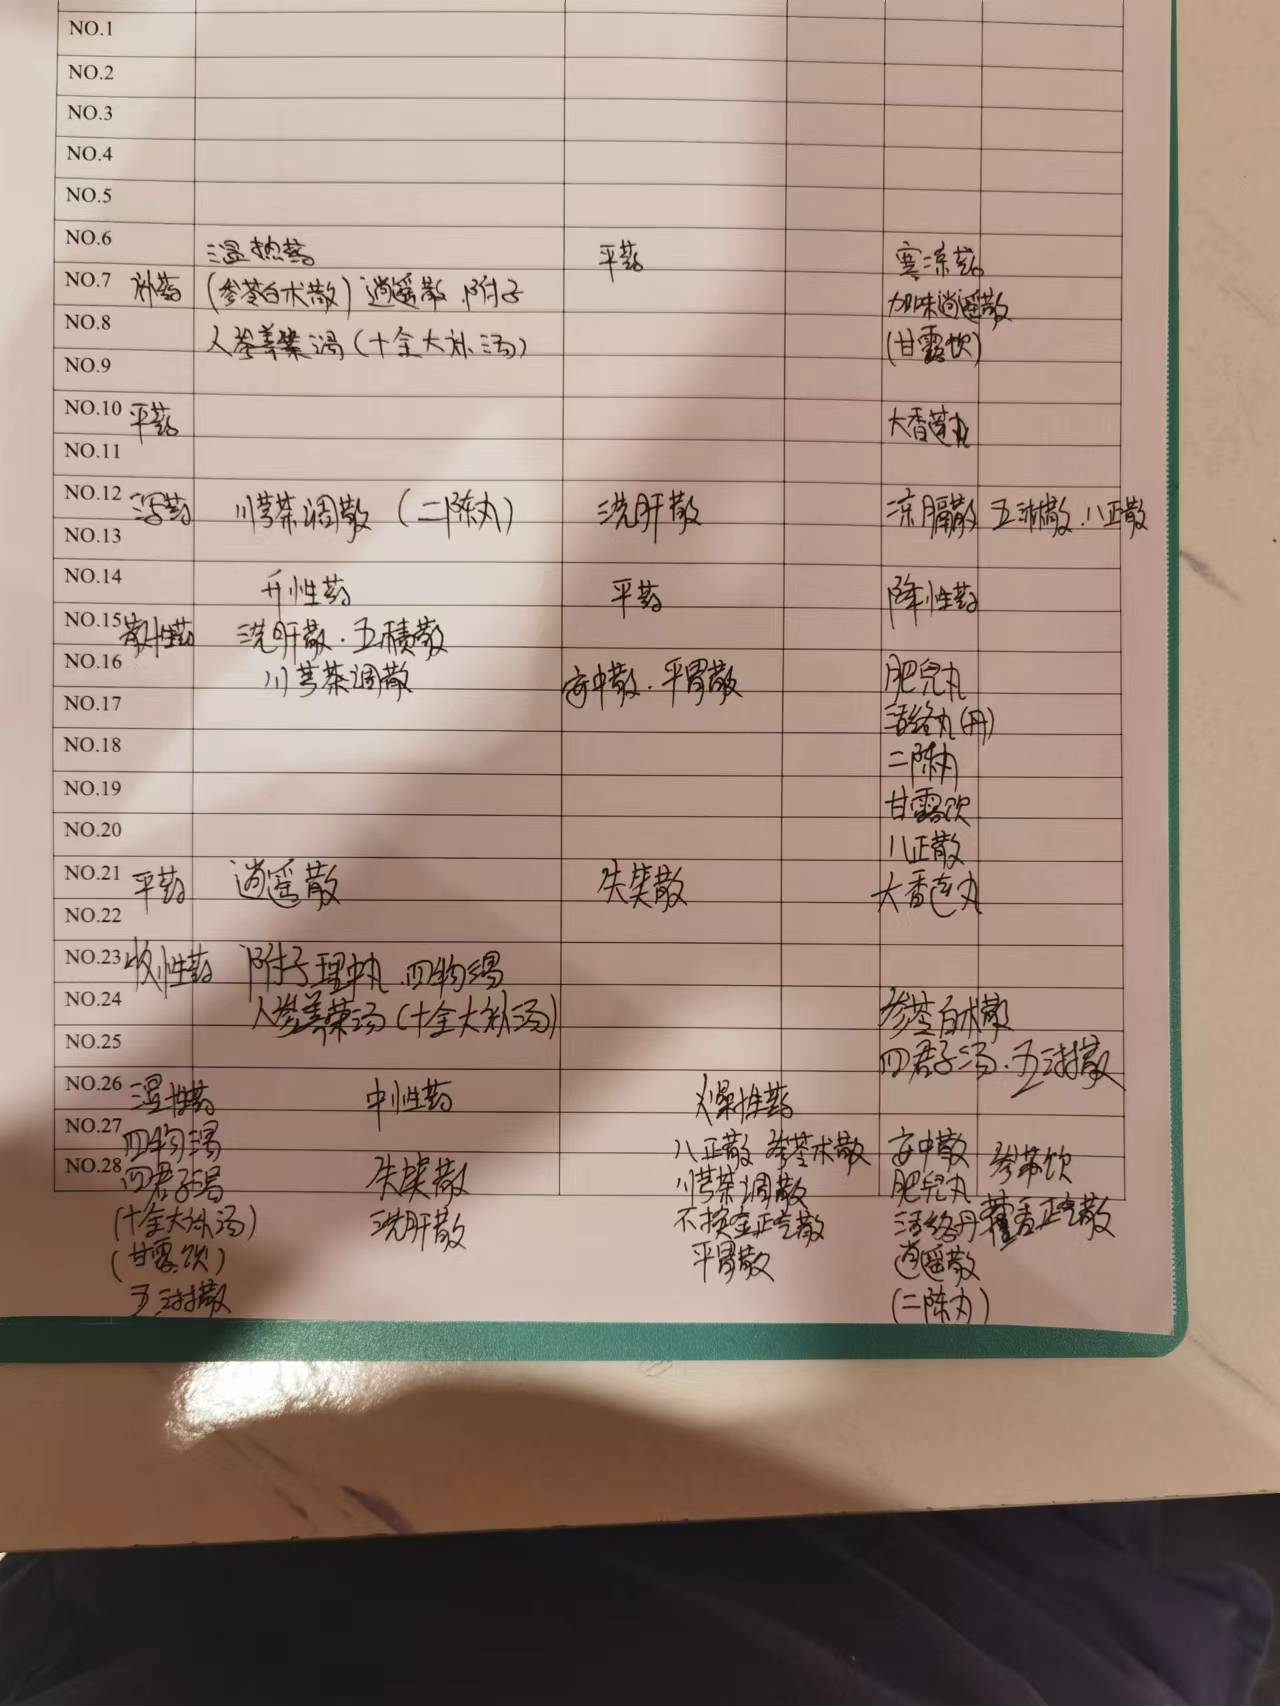 NO.1
NO.2
NO.3
NO.4
NO.5
NO.6 温热药 平药 寒凉药
NO.7 补药 (参苓白术散) 逍遥散.附子 加味逍遥散
NO.8 人参养荣汤(十全大补汤) (甘露饮)
NO.9
NO.10 平药 大香连丸
NO.11
NO.12 泻药 川芎茶调散 (二陈丸) 洗肝散 凉膈散 五淋散.八正散
NO.13
NO.14 升性药 平药 降性药
NO.15 散性药 洗肝散.五积散
NO.16 川芎茶调散 安中散.平胃散 肥儿丸
NO.17 活络丸(丹)
NO.18 二陈丸
NO.19 甘露饮
NO.20 八正散
NO.21 平药 逍遥散 失笑散 大香连丸
NO.22
NO.23 收性药 附子理中丸.四物汤
NO.24 人参养荣汤(十全大补汤) 参苓白术散
NO.25 四君子汤.五淋散
NO.26 湿性药 中性药 燥性药
NO.27 四物汤 八正散 参苓术散 安中散 参苏饮
NO.28 四君子汤 失笑散 川芎茶调散 肥儿丸
(十全大补汤) 洗肝散 不换金正气散 活络丹 藿香正气散
(甘露饮) 平胃散 逍遥散
五淋散 (二陈丸)